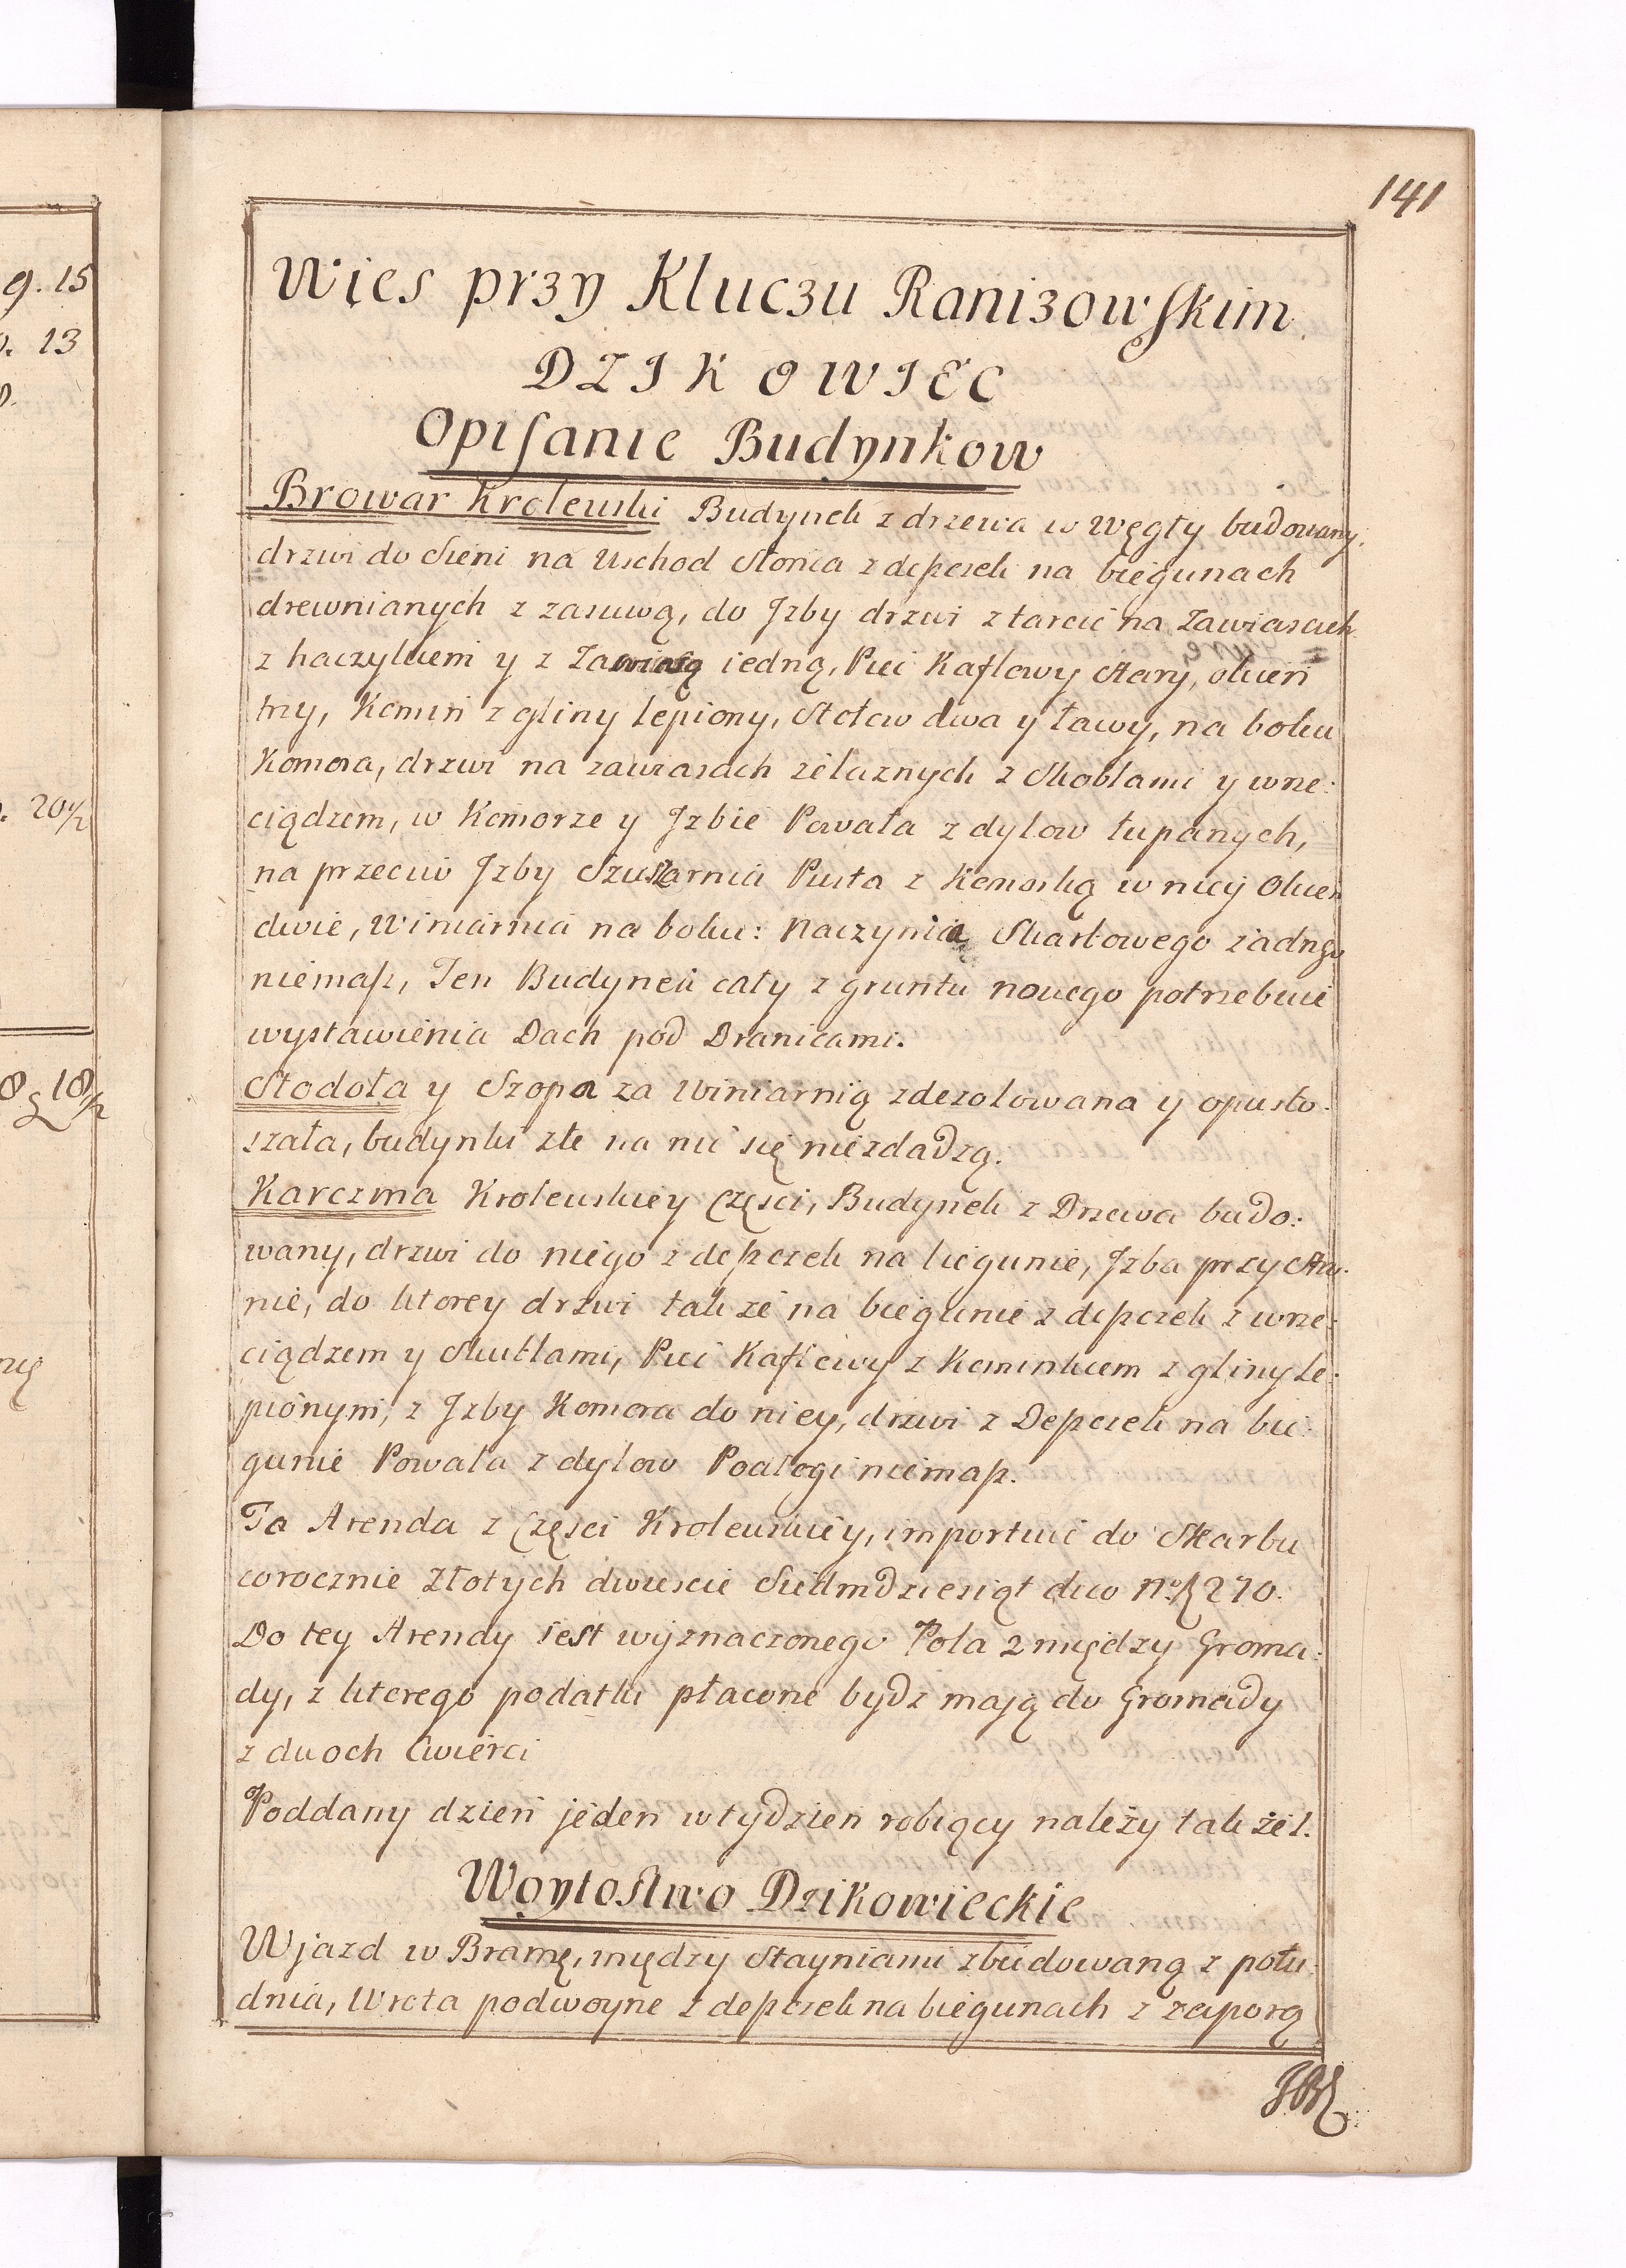 g. 15
141
13
Wies przy Kluczu Ranizowskim
DZIKOWIEC
Opisanie Budynkow
20½
Browar Krolewski Budynek z drzewa w Węgły budowany,
drzwi do Sieni na Wschod Słonca z depczek na biegunach
drewnianych z zasuwą, do Jzby drzwi z tarcic na Zawiasach
z haczykiem y z Zawiasą iedną, Piec Kaflowy stary, okien
trzy, Komin z gliny lepiony, Stołow dwa y ławy, na boku
Komora, drzwi na zawiasach zelaznych z Skoblami y wrze:
ciądzem, w Komorze y Jzbie Powała z dylow łupanych,
na przeciw Jzby Szuszarnia Pusta z Komorką w niey Okien
dwie, Winiarnia na boku: Naczynia Skarbowego żadngo
niemasz, Ten Budynek cały z gruntu nowego potrzebuie
wystawienia Dach pod Dranicami.
Stodoła y Szopa za Winiarnią zdezolowana y opusto:
szała, budynki złe na nic się niezdadzą.
Karczma Krolewskiey Części, Budynek z Drzewa budo:
wany, drzwi do niego z depczek na biegunie, Jzba przy
nie, do ktorey drzwi takze na biegunie z depczek z wrze:
ciądzem y Skutlami, Piec Kaflowy z Kominkiem z gliny le:
pionym, z Jzby Komora do niey, drzwi z Depczek na bie:
gunie Powała z dylow Podłogi niemasz.
Ta Arenda z Części Krolewskiey, importuie do Skarbu
corocznie Złotych dwiescie Siedmdziesiąt dico No 270.
Do tey Arendy iest wyznaczonego Pola 2 między Groma:
dy, z ktorego podatki płacone bydz maią do Gromady
z dwoch Cwierci
Poddany dzien jeden w tydzien robiący należy także 1.
Woytostwo Dzikowieckie
Wjazd w Bramę, między Stayniami zbudowaną z połu:
dnia, Wrota podwoyne z depczek na biegunach z zaporą